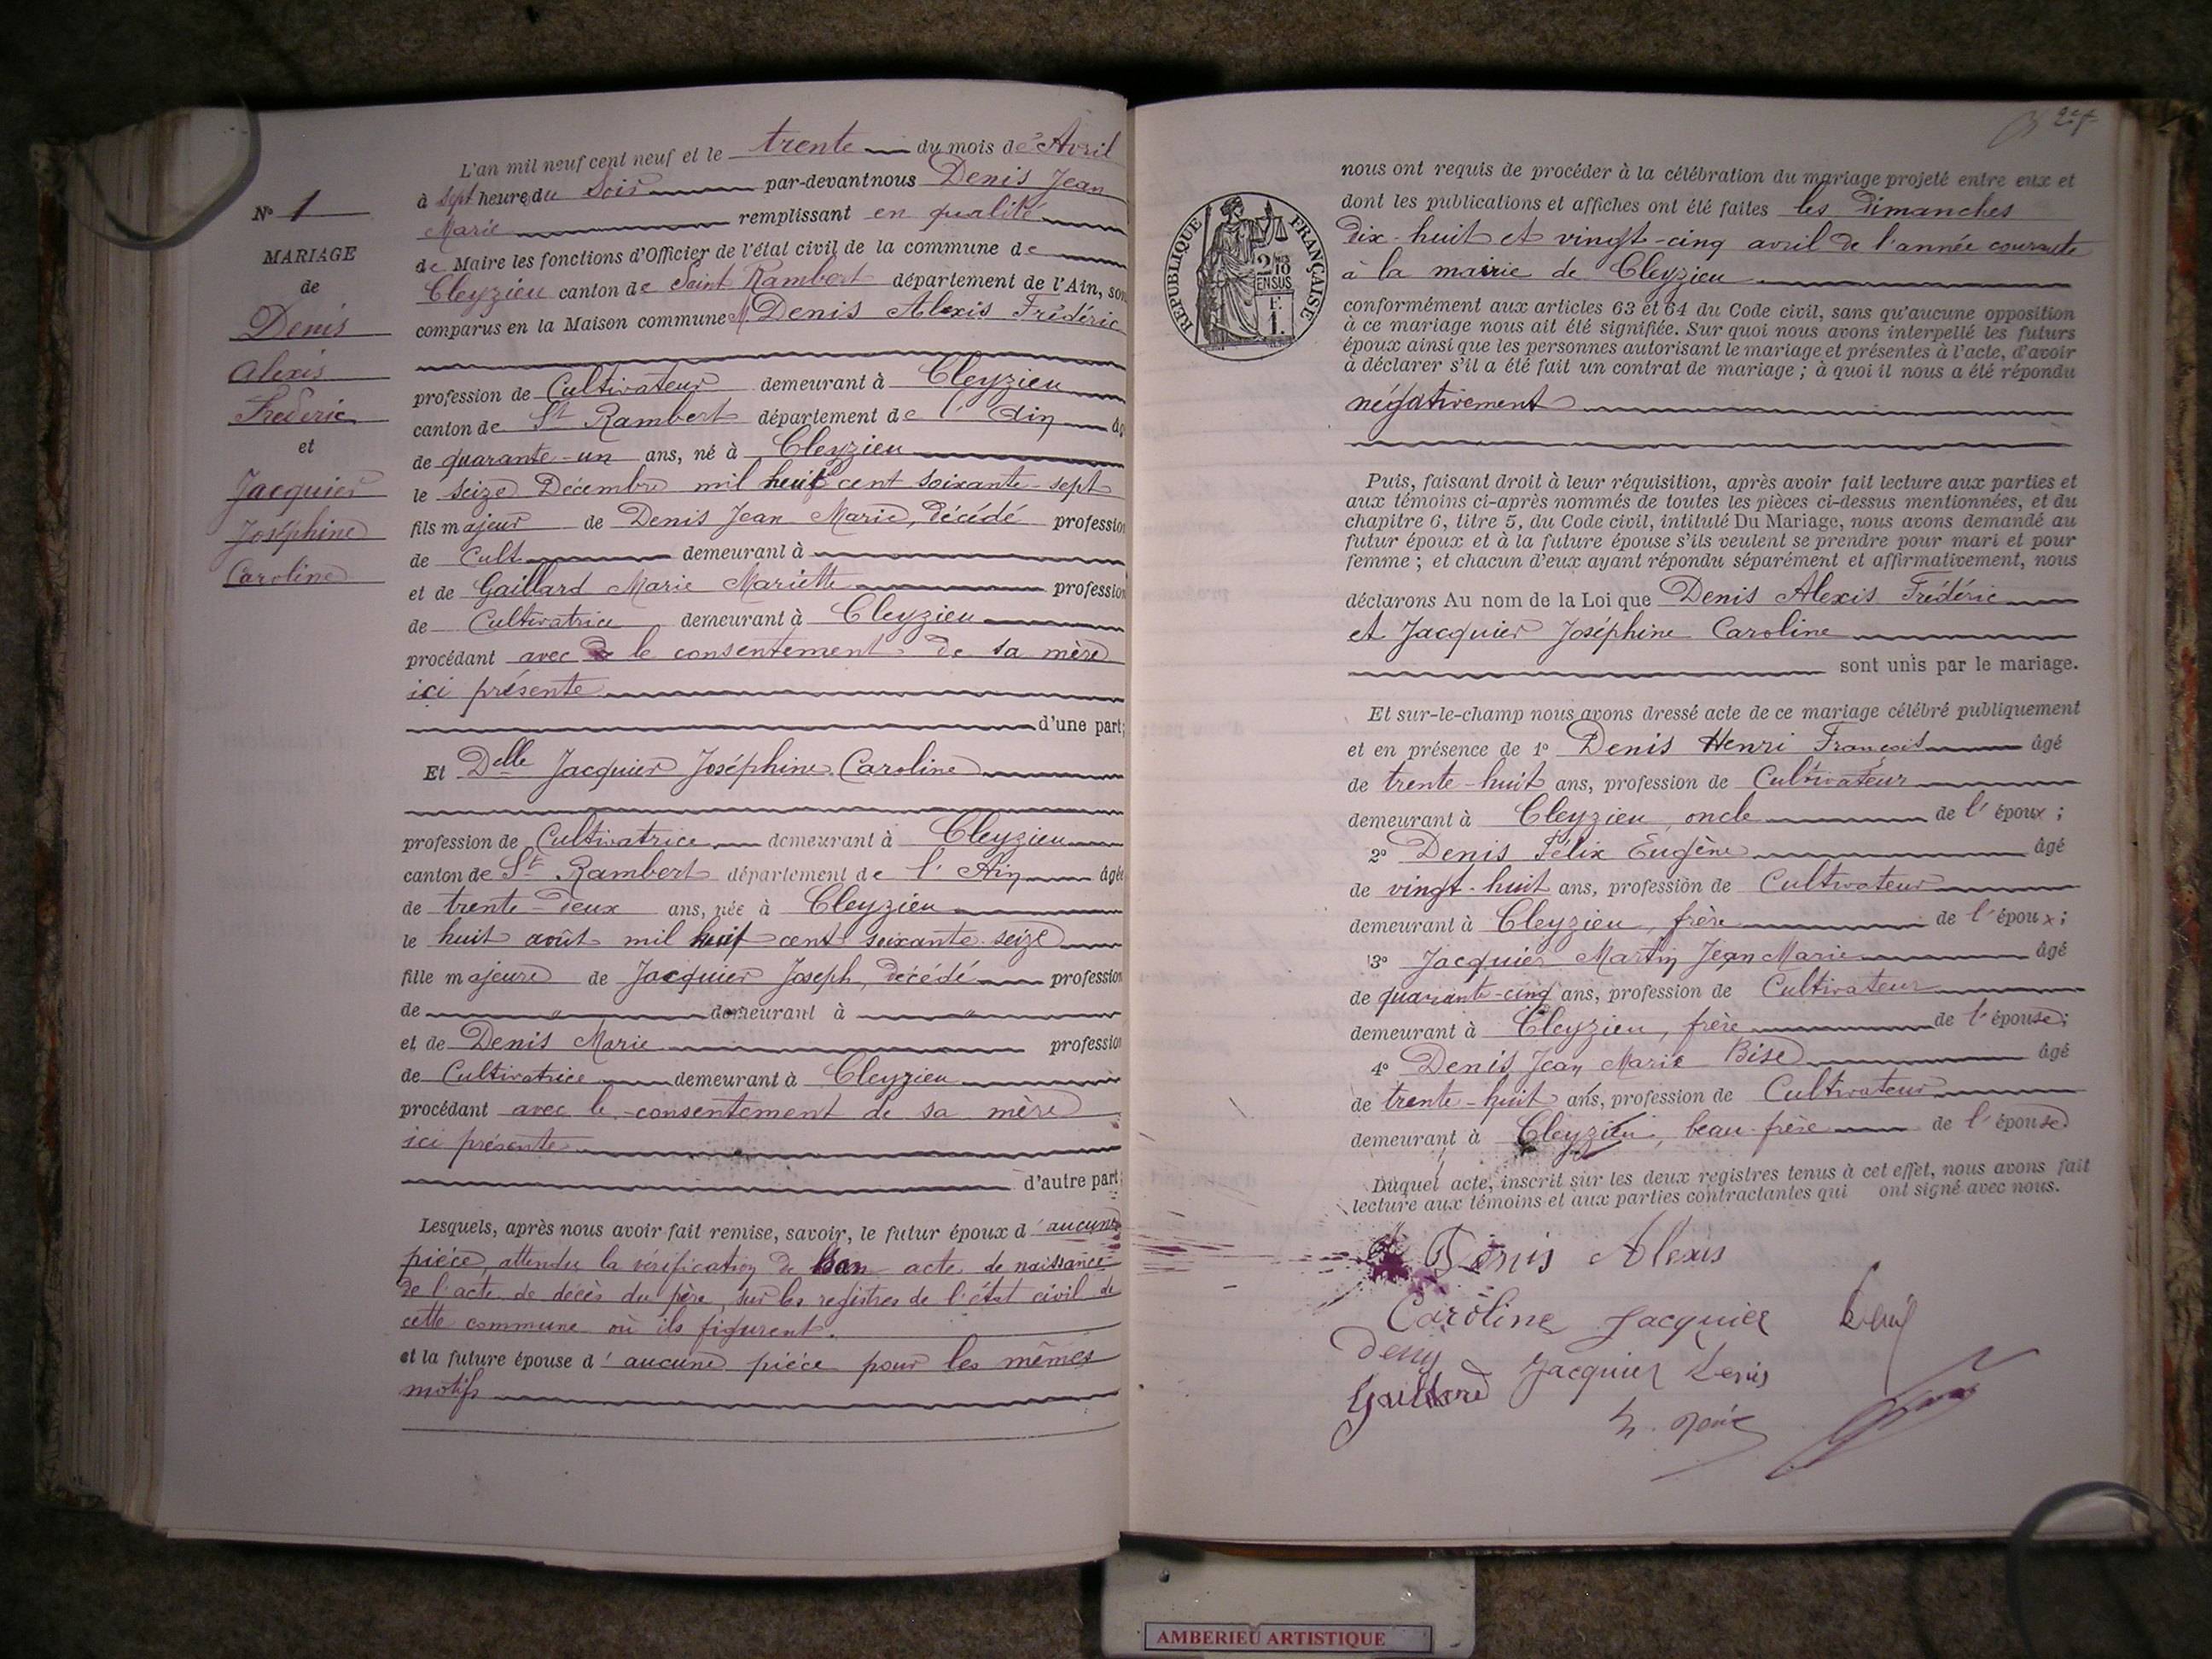 L'an mil neuf cent neuf et le trente du mois de Avril
à sept heure du Soir par-devant nous Denis Jean
Marie remplissant en qualité
de Maire les fonctions d'Officier de l'état civil de la commune de
Cleyzieu canton de Saint Rambert département de l'Ain, son
comparus en la Maison commune M. Denis Alexis Frédéric
profession de Cultivateur demeurant à Cleyzieu
canton de St Rambert département de l'Ain âg
de quarante-un ans, né à Cleyzieu
le seize Décembre mil huit cent soixante-sept
fils majeur de Denis Jean Marie, décédé profession
de Cult demeurant à
et de Gaillard Marie Mariette profession
de Cultivatrice demeurant à Cleyzieu
procédant avec le consentement de sa mère
ici présente
d'une part;
Et Delle Jacquier Joséphine Caroline
profession de Cultivatrice demeurant à Cleyzieu
canton de St Rambert département de l'Ain âgée
de trente-deux ans, née à Cleyzieu
le huit août mil huit cent soixante-seize
fille majeure de Jacquier Joseph, décédé profession
de " demeurant à "
et de Denis Marie profession
de Cultivatrice demeurant à Cleyzieu
procédant avec le consentement de sa mère
ici présente
d'autre part;
Lesquels, après nous avoir fait remise, savoir, le futur époux d'aucune
pièce, attendu la vérification de son acte de naissance
de l'acte de décès du père, sur les registres de l'état civil de
cette commune où ils figurent.
et la future épouse d'aucune pièce pour les mêmes
motifs
N° 1
MARIAGE
de
Denis
Alexis
Frederic
et
Jacquier
Joséphine
Caroline
27
RÉPUBLIQUE FRANÇAISE
2/10
EN SUS
F.
1.
nous ont requis de procéder à la célébration du mariage projeté entre eux et
dont les publications et affiches ont été faites les Dimanches
dix-huit et vingt-cinq avril de l'année courante
à la mairie de Cleyzieu
conformément aux articles 63 et 64 du Code civil, sans qu'aucune opposition
à ce mariage nous ait été signifiée. Sur quoi nous avons interpellé les futurs
époux ainsi que les personnes autorisant le mariage et présentes à l'acte, d'avoir
à déclarer s'il a été fait un contrat de mariage ; à quoi il nous a été répondu
négativement
Puis, faisant droit à leur réquisition, après avoir fait lecture aux parties et
aux témoins ci-après nommés de toutes les pièces ci-dessus mentionnées, et du
chapitre 6, titre 5, du Code civil, intitulé Du Mariage, nous avons demandé au
futur époux et à la future épouse s'ils veulent se prendre pour mari et pour
femme ; et chacun d'eux ayant répondu séparément et affirmativement, nous
déclarons Au nom de la Loi que Denis Alexis Frédéric
et Jacquier Joséphine Caroline
sont unis par le mariage.
Et sur-le-champ nous avons dressé acte de ce mariage célébré publiquement
et en présence de 1° Denis Henri François âgé
de trente-huit ans, profession de Cultivateur
demeurant à Cleyzieu, oncle de l'époux ;
2° Denis Félix Eugène âgé
de vingt-huit ans, profession de Cultivateur
demeurant à Cleyzieu, frère de l'époux ;
3° Jacquier Martin Jean Marie âgé
de quarante-cinq ans, profession de Cultivateur
demeurant à Cleyzieu, frère de l'épouse ;
4° Denis Jean Marie Bise âgé
de trente-huit ans, profession de Cultivateur
demeurant à Cleyzieu, beau-frère de l'épouse
Duquel acte, inscrit sur les deux registres tenus à cet effet, nous avons fait
lecture aux témoins et aux parties contractantes qui ont signé avec nous.
Denis Alexis
Caroline Jacquier
Jacquier Denis
Gaillard
AMBERIEU ARTISTIQUE